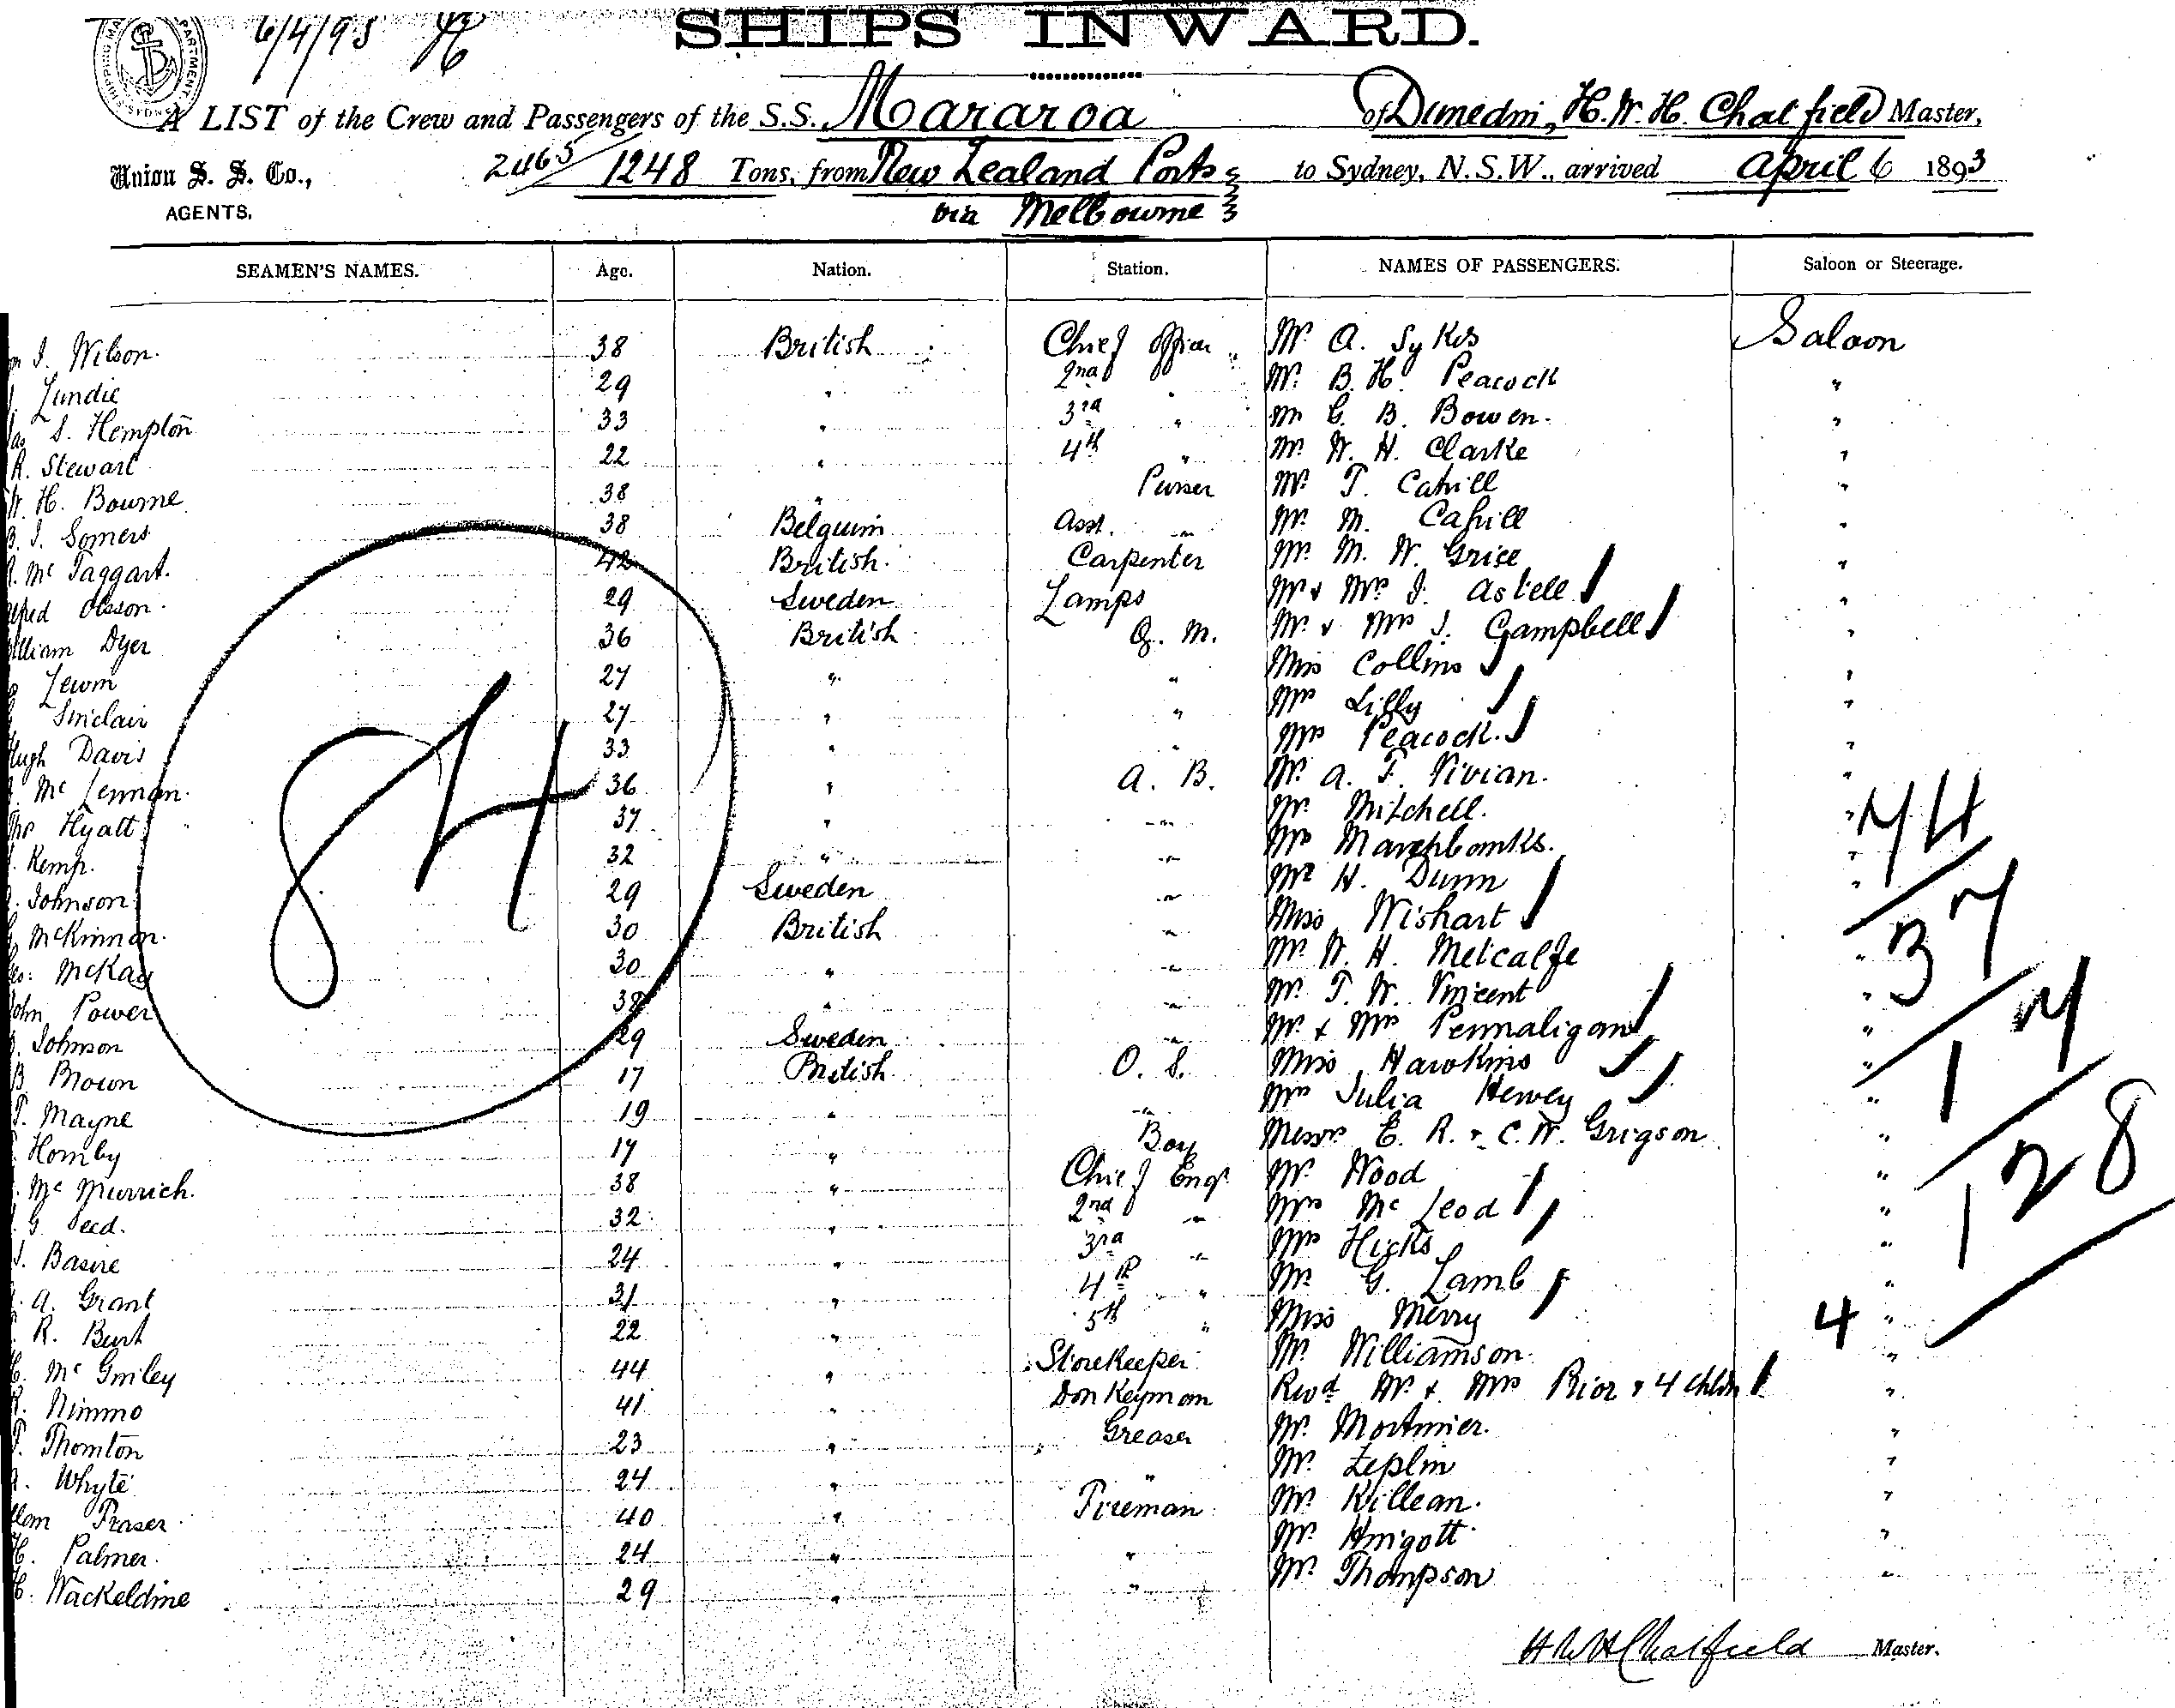 6/4/93
SHIPS INWARD.
A LIST of the Crew and Passengers of the S.S. Mararoa of Dunedin, H. W. H. Chatfield Master,
Union S. S. Co., 2465 1248 Tons, from New Zealand Ports to Sydney, N.S.W., arrived April 6 1893
AGENTS. via Melbourne
SEAMEN'S NAMES. Age. Nation. Station. NAMES OF PASSENGERS. Saloon or Steerage.
J. Wilson. 38 British Chief Officer Mr. A. Sykes Saloon
Lundie 29 " 2nd " Mr. B. H. Peacock "
S. Hempton 33 " 3rd " Mr C. B. Bowen. "
R. Stewart 22 " 4th " Mr. W. H. Clarke "
W. H. Bourne 38 " Purser Mr. T. Cahill "
B. J. Somers 38 Belguim Asst. " Mr. M. Cahill "
Mc Taggart. 42 British. Carpenter Mr. M. W. Grice "
Olsson. 29 Sweden Lamps Mr & Mrs J. Astell "
William Dyer 36 British Q. M. Mr. & Mrs J. Campbell "
Lewin 27 " " Miss Collins "
Sinclair 27 " " Mrs Lilly "
Hugh Davis 33 " " Mrs Peacock. "
Mc Lennan. 36 " A. B. Mr. A. F. Vivian. "
Thos Hyatt 37 " " Mr. Mitchell. " 74
Kemp. 32 " " Mrs Marchbanks. "
Johnson 29 Sweden " Mr H. Dunn "
McKinnon. 30 British " Miss Wishart 37
Geo: McKay 30 " " Mr. W. H. Metcalfe "
John Power 38 " " Mr. T. W. Vincent "
Johnson 29 Sweden " Mr. & Mrs Pennaligan " 17
B. Brown 17 British O. S. Miss Hawkins "
T. Mayne 19 " " Mrs Julia Hervey "
Hornby 17 " Boy Messrs E. R. & C. W. Grigson "
Mc Murrich. 38 " Chief Engr Mr. Wood " 128
G. Seed. 32 " 2nd " Mrs Mc Leod "
J. Basire 24 " 3rd " Mrs Hicks "
A. Grant 31 " 4th " Mr. G. Lamb "
R. Burt 22 " 5th " Miss Merry 4 "
Mc Ginley 44 " Storekeeper Mr. Williamson. "
R. Nimmo 41 " Donkeyman Revd Mr. & Mrs Prior & 4 Chldn "
T. Thornton 23 " Greaser Mr. Mortimer. "
Whyte 24 " " Mr. Zeplin "
Fraser 40 " Fireman Mr. Killean. "
H. Palmer. 24 " " Mr. "
Wackeldine 29 " " Mr. Thompson "
H W H Chatfield Master.